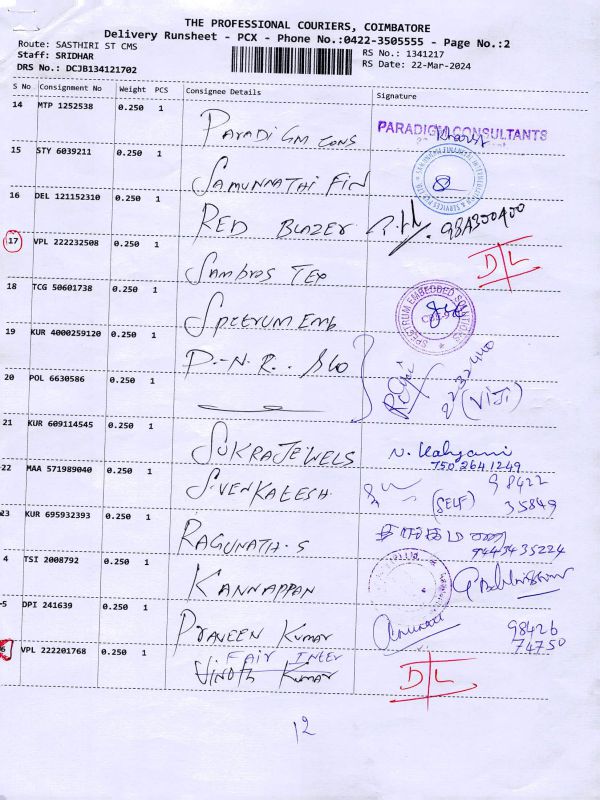 THE PROFESSIONAL COURIERS, COIMBATORE
Delivery Runsheet - PCX - Phone No.:0422-3505555 - Page No.:2
Route: SASTHIRI ST CMS
Staff: SRIDHAR
DRS No.: DCJB134121702
RS No.: 1341217
RS Date: 22-Mar-2024
S No Consignment No Weight PCS Consignee Details Signature
14 MTP 1252538 0.250 1 PARADIGM CONS PARADIGM CONSULTANTS
15 STY 6039211 0.250 1 SAMUNNATHI FIN
16 DEL 121152310 0.250 1 RED BLAZER
17 VPL 222232508 0.250 1 Sambros TEX D/L
18 TCG 50601738 0.250 1 SPECTRUM Emb SPECTRUM EMBEDDED SOLUTIONS
19 KUR 4000259120 0.250 1 P.-N.R..
20 POL 6630586 0.250 1 2232440 (VIJI)
21 KUR 609114545 0.250 1 SUKRA JEWELS N. Kalyani
750 264 1249
22 MAA 571989040 0.250 1 S.VENKATESH. (SELF) 98422
35849
23 KUR 695932393 0.250 1 RAGUNATH.S
9443435224
4 TSI 2008792 0.250 1 KANNAPPAN
5 DPI 241639 0.250 1 PRAVEEN KUMAR 98426
74750
6 VPL 222201768 0.250 1 FAIR INTER
VINOTH KUMAR D/L
12